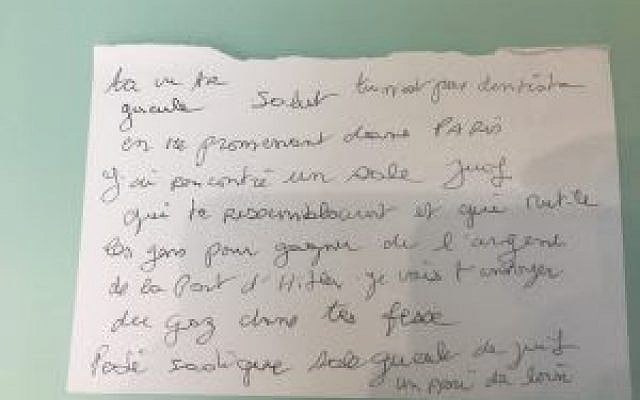 ta vu ta gueule Salut tu n'est pas dentiste
en se promenant dans PARIS
J'ai rencontré un sale juif
qui te ressemblaient et qui mutile
les gens pour gagner de l'argent
de la Part d'Hitler je vais t'envoyer
du gaz dans tes fesse
Pédé sadique sale gueule de juif
un de